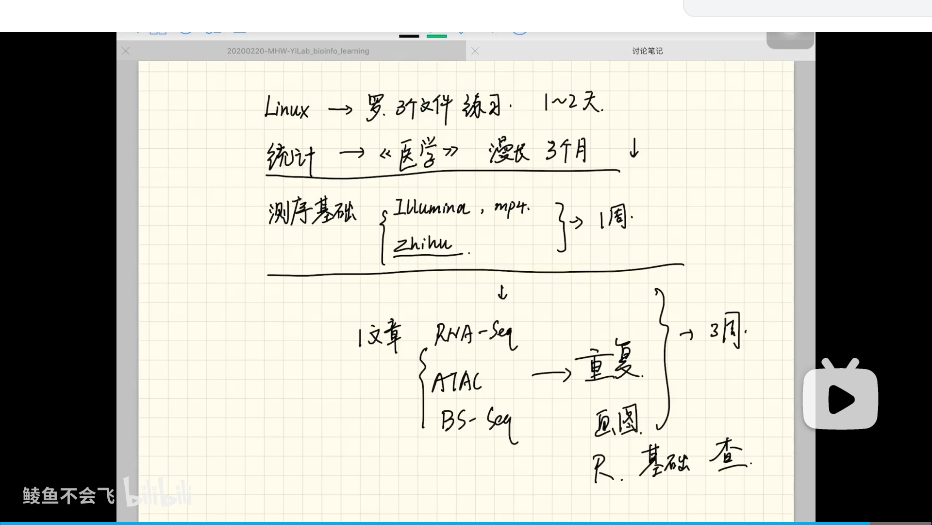 20200220-MHW-YiLab_bioinfo_learning
讨论笔记
Linux → 罗. 3个文件 练习. 1~2天.
统计 → 《医学》 漫长 3个月 ↓
测序基础 { Illumina, mp4. } → 1周.
zhihu.
↓
1文章 { RNA-Seq
ATAC → 重复. } → 3周.
BS-Seq 画图.
R. 基础 查.
鲮鱼不会飞 bilibili